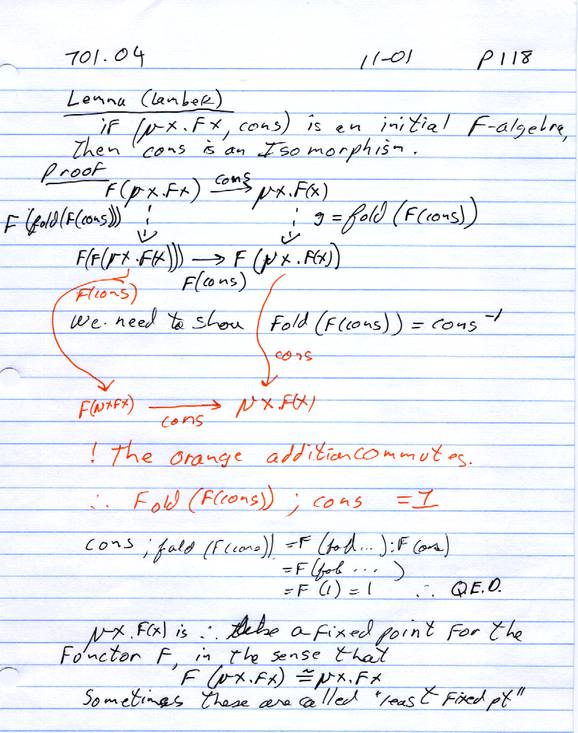 701.04 11-01 P118
Lemma (Lambek)
if (μx.Fx, cons) is an initial F-algebra,
Then cons is an Isomorphism.
Proof
F(μx.Fx) cons μx.F(x)
F(fold(F(cons))) g = fold (F(cons))
F(F(μx.F(x))) → F(μx.F(x))
F(cons) F(cons)
We need to show Fold (F(cons)) = cons⁻¹
cons
F(μxFx) → μx.F(x)
cons
! The orange addition commutes.
∴ Fold (F(cons)) ; cons = I
cons ; fold (F(cons)) = F(fod...);F(cons)
= F(fob ... )
= F(1) = 1 ∴ Q.E.D.
μx.F(x) is ∴ a Fixed point For the
Functor F, in the sense that
F(μx.Fx) ≅ μx.Fx
Sometimes these are called "least Fixed pt"